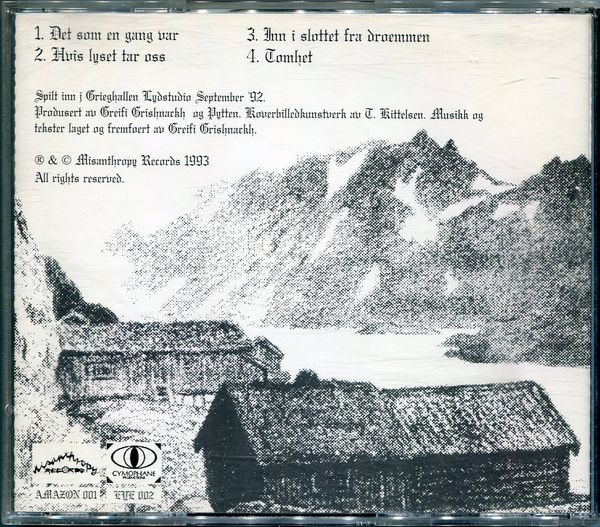 1. Det som en gang var
2. Hvis lyset tar oss
3. Inn i slottet fra droemmen
4. Tomhet
Spilt inn j Grieghallen Lydstudio September '92.
Produsert av Greifi Grishnackh og Pytten. Koverbilledkunstverk av T. Kittelsen. Musikk og
tekster laget og fremfoert av Greifi Grishnackh.
® & © Misanthropy Records 1993
All rights reserved.
Misanthropy
RECORDS
CYMOPHANE
PRODUCTIONS
AMAZON 001
EYE 002